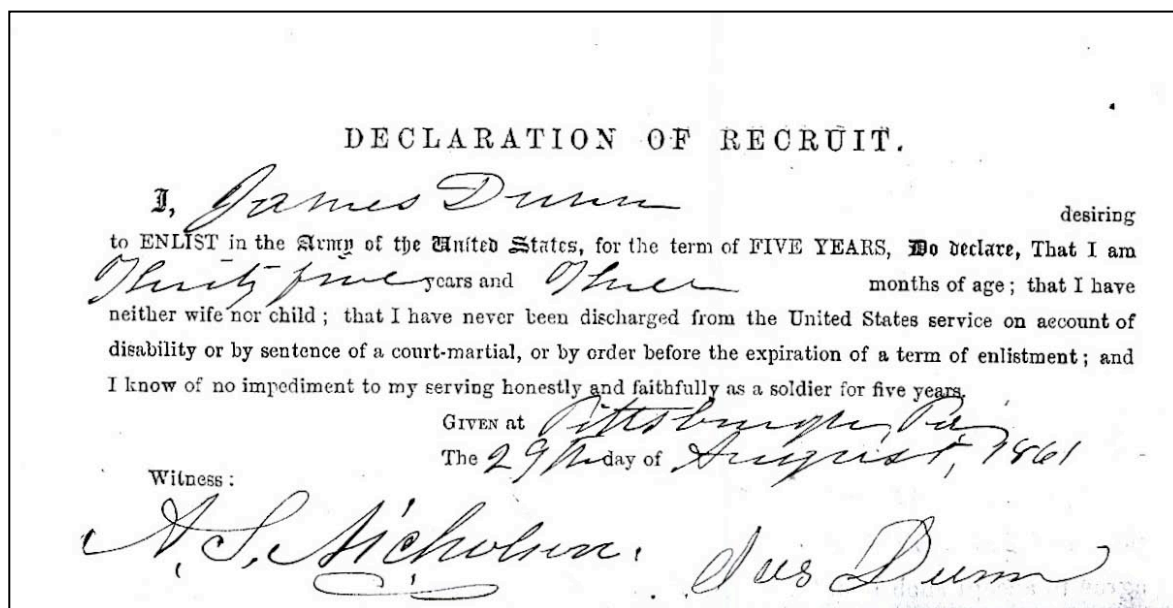 DECLARATION OF RECRUIT.
I, James Dunn desiring
to ENLIST in the Army of the United States, for the term of FIVE YEARS, Do declare, That I am
Thirty five years and Three months of age; that I have
neither wife nor child; that I have never been discharged from the United States service on account of
disability or by sentence of a court-martial, or by order before the expiration of a term of enlistment; and
I know of no impediment to my serving honestly and faithfully as a soldier for five years.
GIVEN at Pittsburgh, Pa
The 29th day of August, 1861
Witness:
A. S. Nicholson. Jas Dunn